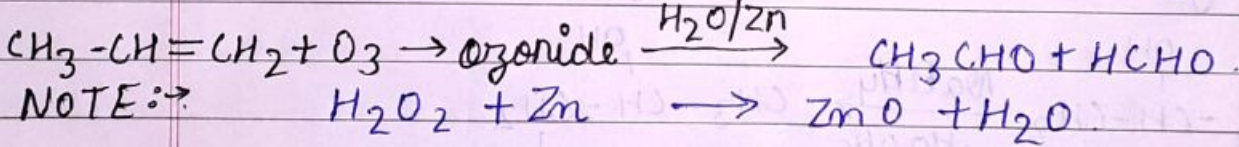 CH₃-CH=CH₂+O₃ → ozonide H₂O/Zn → CH₃CHO+HCHO.
NOTE:→ H₂O₂ +Zn → ZnO +H₂O.